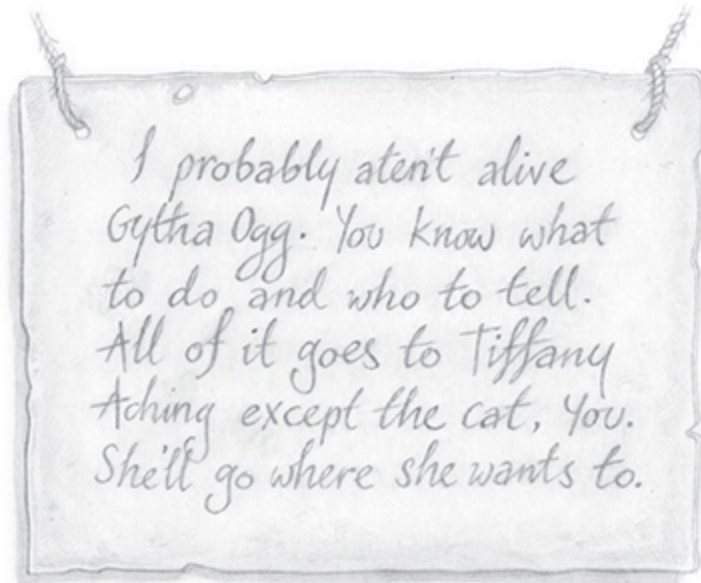 I probably aten't alive
Gytha Ogg. You know what
to do and who to tell.
All of it goes to Tiffany
Aching except the cat, You.
She'll go where she wants to.